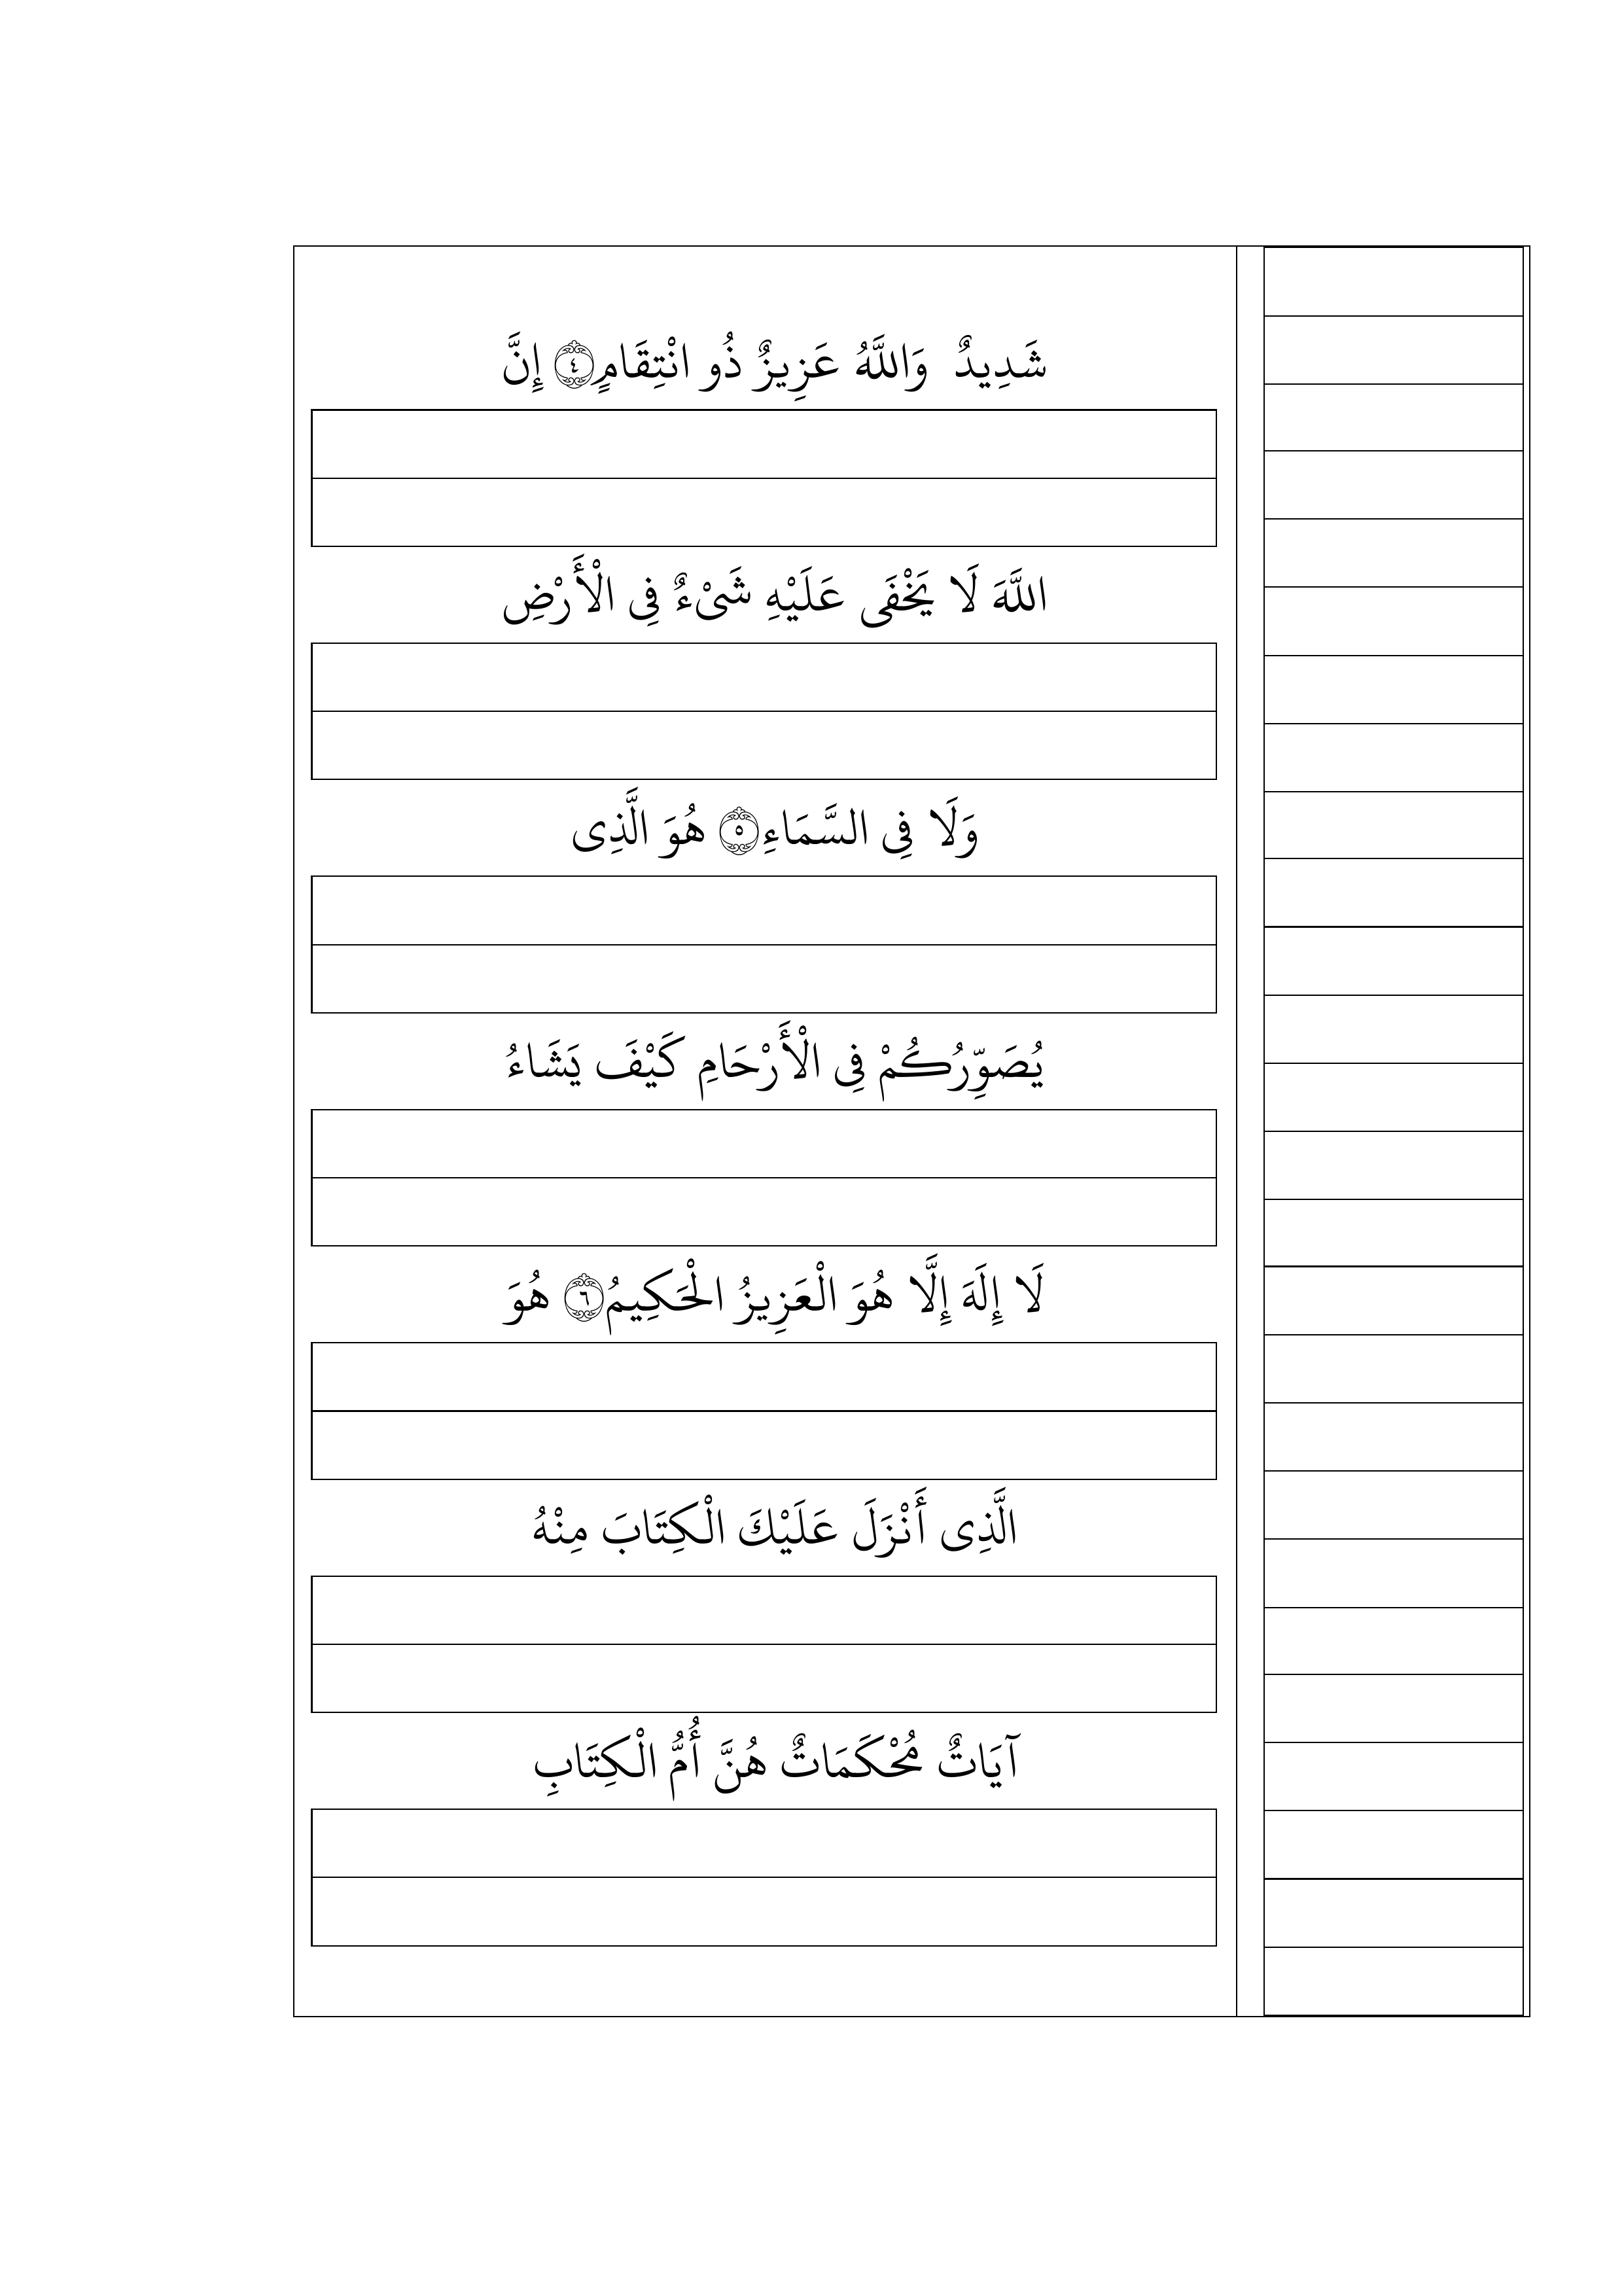 شَدِيدٌ وَاللَّهُ عَزِيزٌ ذُو انْتِقَامٍ۝٤ إِنَّ
اللَّهَ لَا يَخْفَى عَلَيْهِ شَىْءٌ فِى الْأَرْضِ
وَلَا فِى السَّمَاءِ۝٥ هُوَ الَّذِى
يُصَوِّرُكُمْ فِى الْأَرْحَامِ كَيْفَ يَشَاءُ
لَا إِلَهَ إِلَّا هُوَ الْعَزِيزُ الْحَكِيمُ۝٦ هُوَ
الَّذِى أَنْزَلَ عَلَيْكَ الْكِتَابَ مِنْهُ
آيَاتٌ مُحْكَمَاتٌ هُنَّ أُمُّ الْكِتَابِ